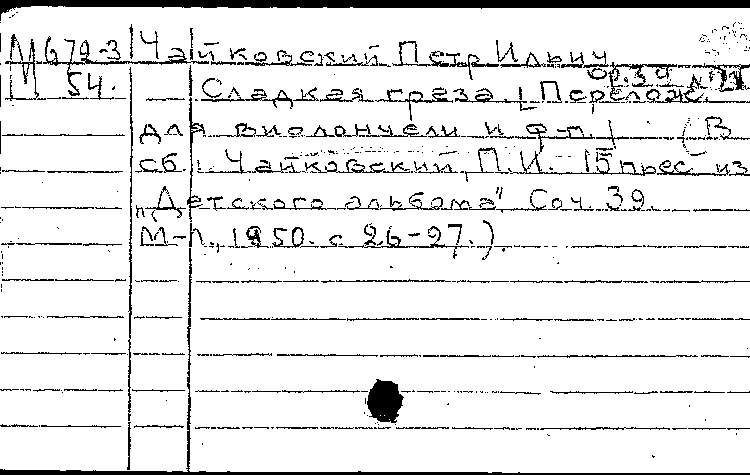 М679-3 Чайковский Петр Ильич.
ор.39 № 21
54. Сладкая греза. [Перелож.
для виолончели и ф-п.] (В
сб.: Чайковский, П.И. 15 пьес из
"Детского альбома", Соч. 39.
М-Л., 1950. с 26-27.).